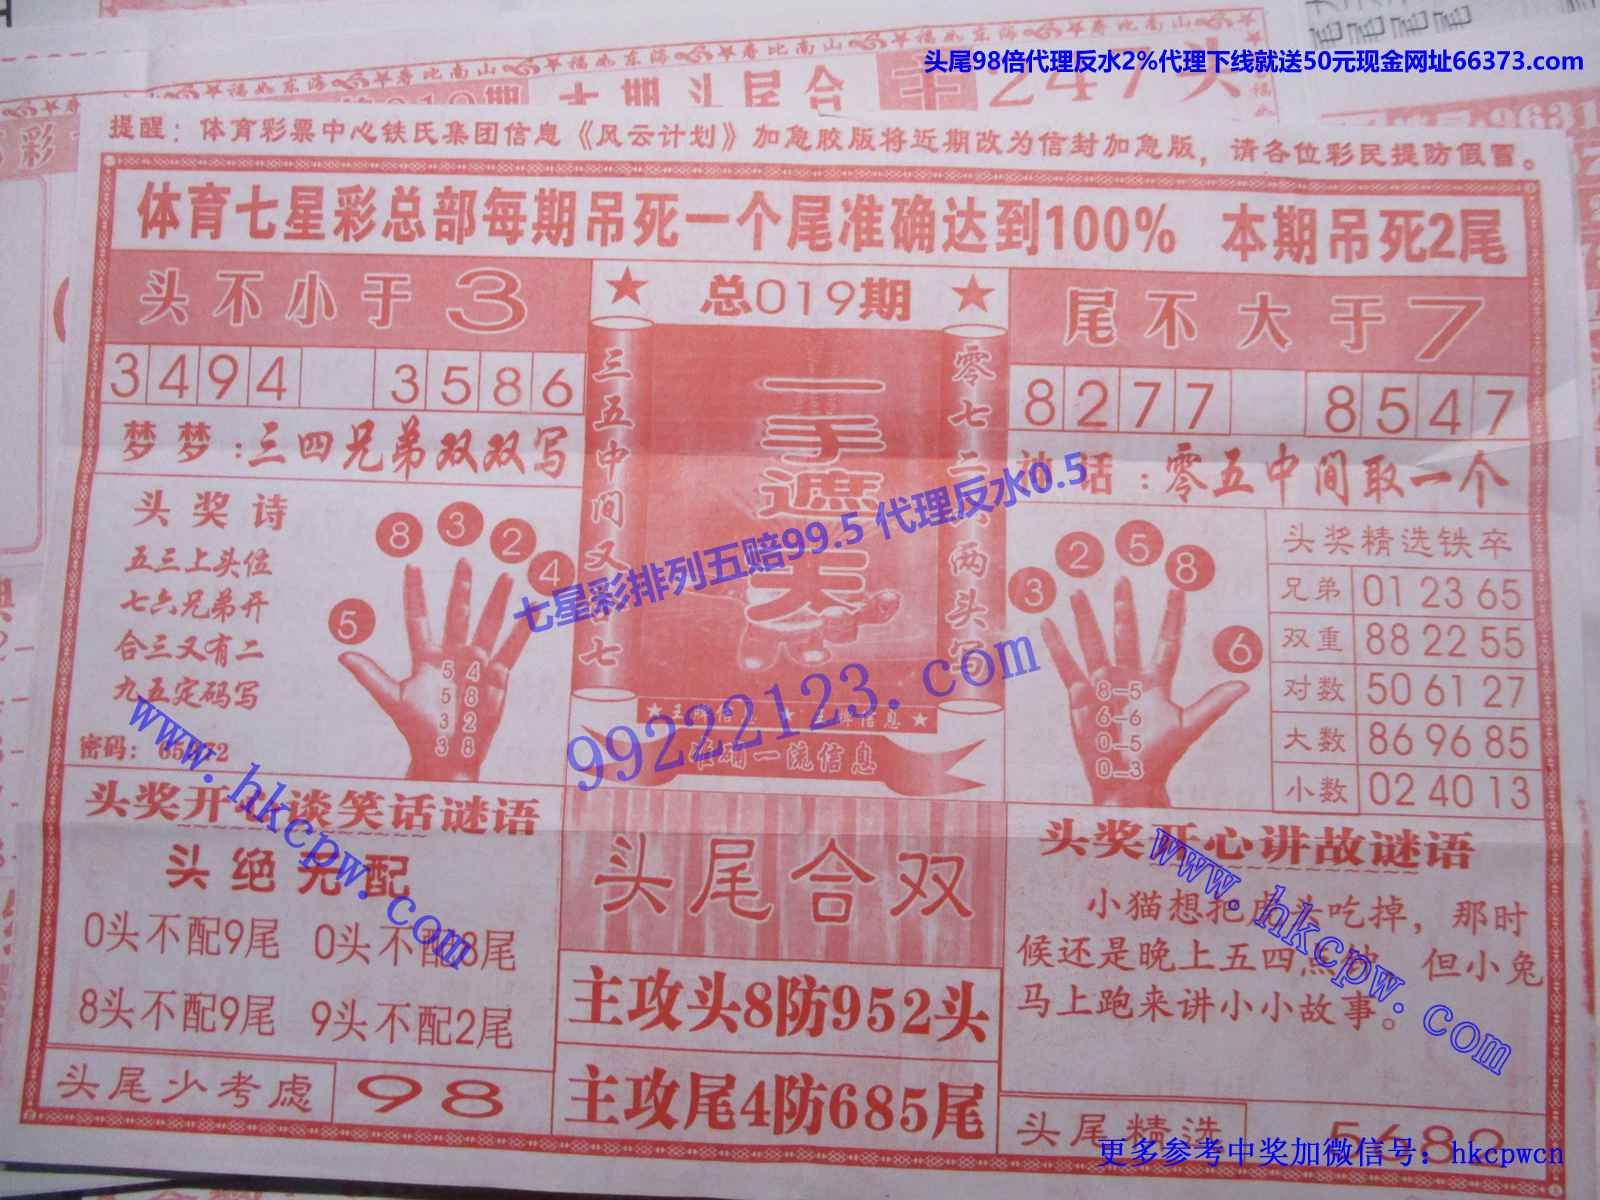 头尾98倍代理反水2%代理下线就送50元现金网址66373.com
提醒：体育彩票中心铁氏集团信息《风云计划》加急胶版将近期改为信封加急版，请各位彩民提防假冒。
体育七星彩总部每期吊死一个尾准确达到100% 本期吊死2尾
头不小于3
3494 3586
梦梦:三四兄弟双双写
头奖诗
五三上头位
七六兄弟开
合三又有二
九五定码写
密码:
8 3 2 4 5
5 4
5 8
3 2
3 8
总019期
三五中间又 七
零七二 两头写
一手遮天
准确一流信息
尾不大于7
8277 8547
话:零五中间取一个
3 2 5 8 6
8-5
6-6
0-5
0-3
头奖精选铁卒
兄弟 01 23 65
双重 88 22 55
对数 50 61 27
大数 86 96 85
小数 02 40 13
七星彩排列五赔99.5 代理反水0.5
99222123.com
www.hkcpw.com
头奖开心谈笑话谜语
头绝无配
0头不配9尾 0头不配8尾
8头不配9尾 9头不配2尾
头尾少考虑 98
头尾合双
主攻头8防952头
主攻尾4防685尾
头奖开心讲故谜语
小猫想把虎头吃掉，那时
候还是晚上五四点钟 但小兔
马上跑来讲小小故事。
www.hkcpw.com
头尾精选
更多参考中奖加微信号：hkcpwcn